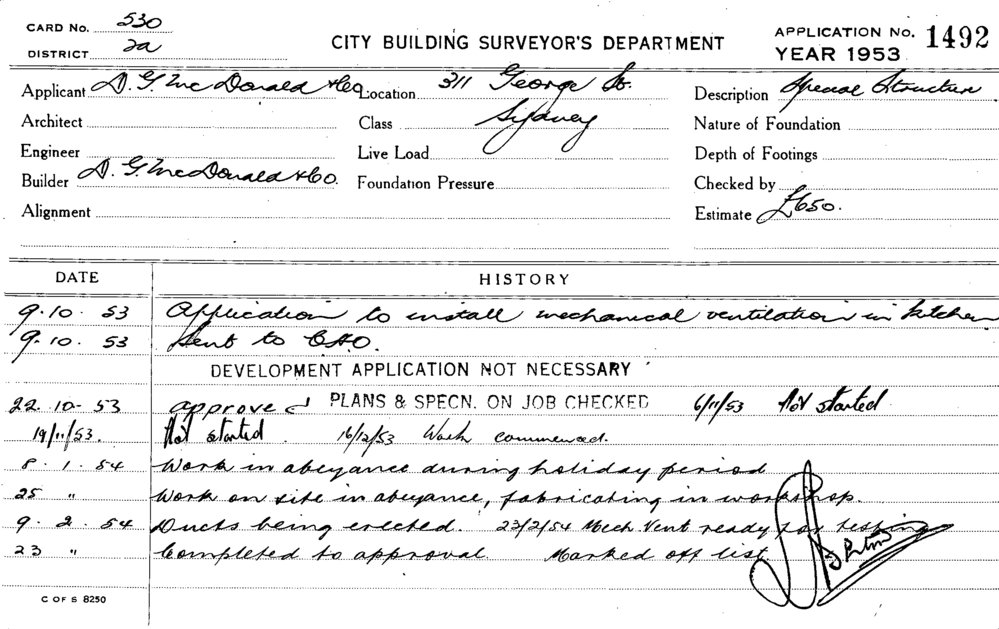 CARD NO. 530
DISTRICT 2a
CITY BUILDING SURVEYOR'S DEPARTMENT
APPLICATION NO. 1492
YEAR 1953
Applicant D. G. McDonald & Co Location 311 George St. Description Special Structure
Architect Class Sydney Nature of Foundation
Engineer Live Load Depth of Footings
Builder D. G. McDonald & Co. Foundation Pressure Checked by
Alignment Estimate £650.
DATE HISTORY
9.10.53 Application to install mechanical ventilation in kitchen
9.10.53 Sent to CHO.
DEVELOPMENT APPLICATION NOT NECESSARY
22.10-53 approved PLANS & SPECN. ON JOB CHECKED 6/11/53 Not started
19/11/53. Not started. 16/12/53 Work commenced.
8.1.54 Work in abeyance during holiday period
25 " Work on site in abeyance, fabricating in workshop.
9.2.54 Ducts being erected. 23/2/54 Mech Vent ready for testing
23 " Completed to approval Marked off list
C OF S 8250